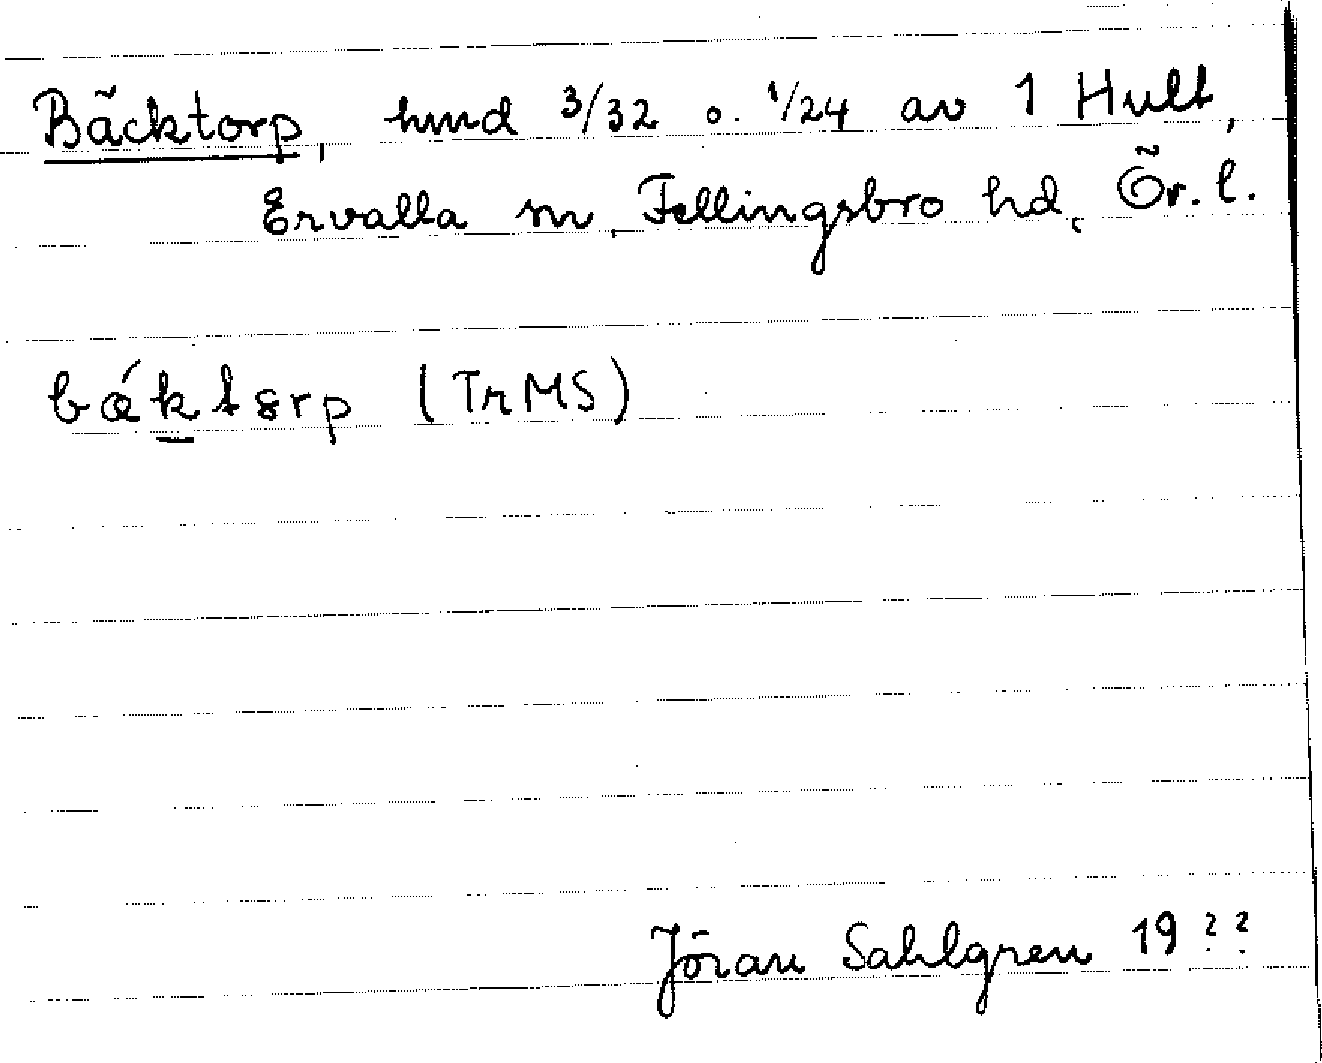 Bäcktorp, hmd 3/32 o. 1/24 av 1 Hult,
Ervalla sn, Fellingsbro hd, Ör. l.
bǽktȣrp (TrMS)
Jöran Sahlgren 19??